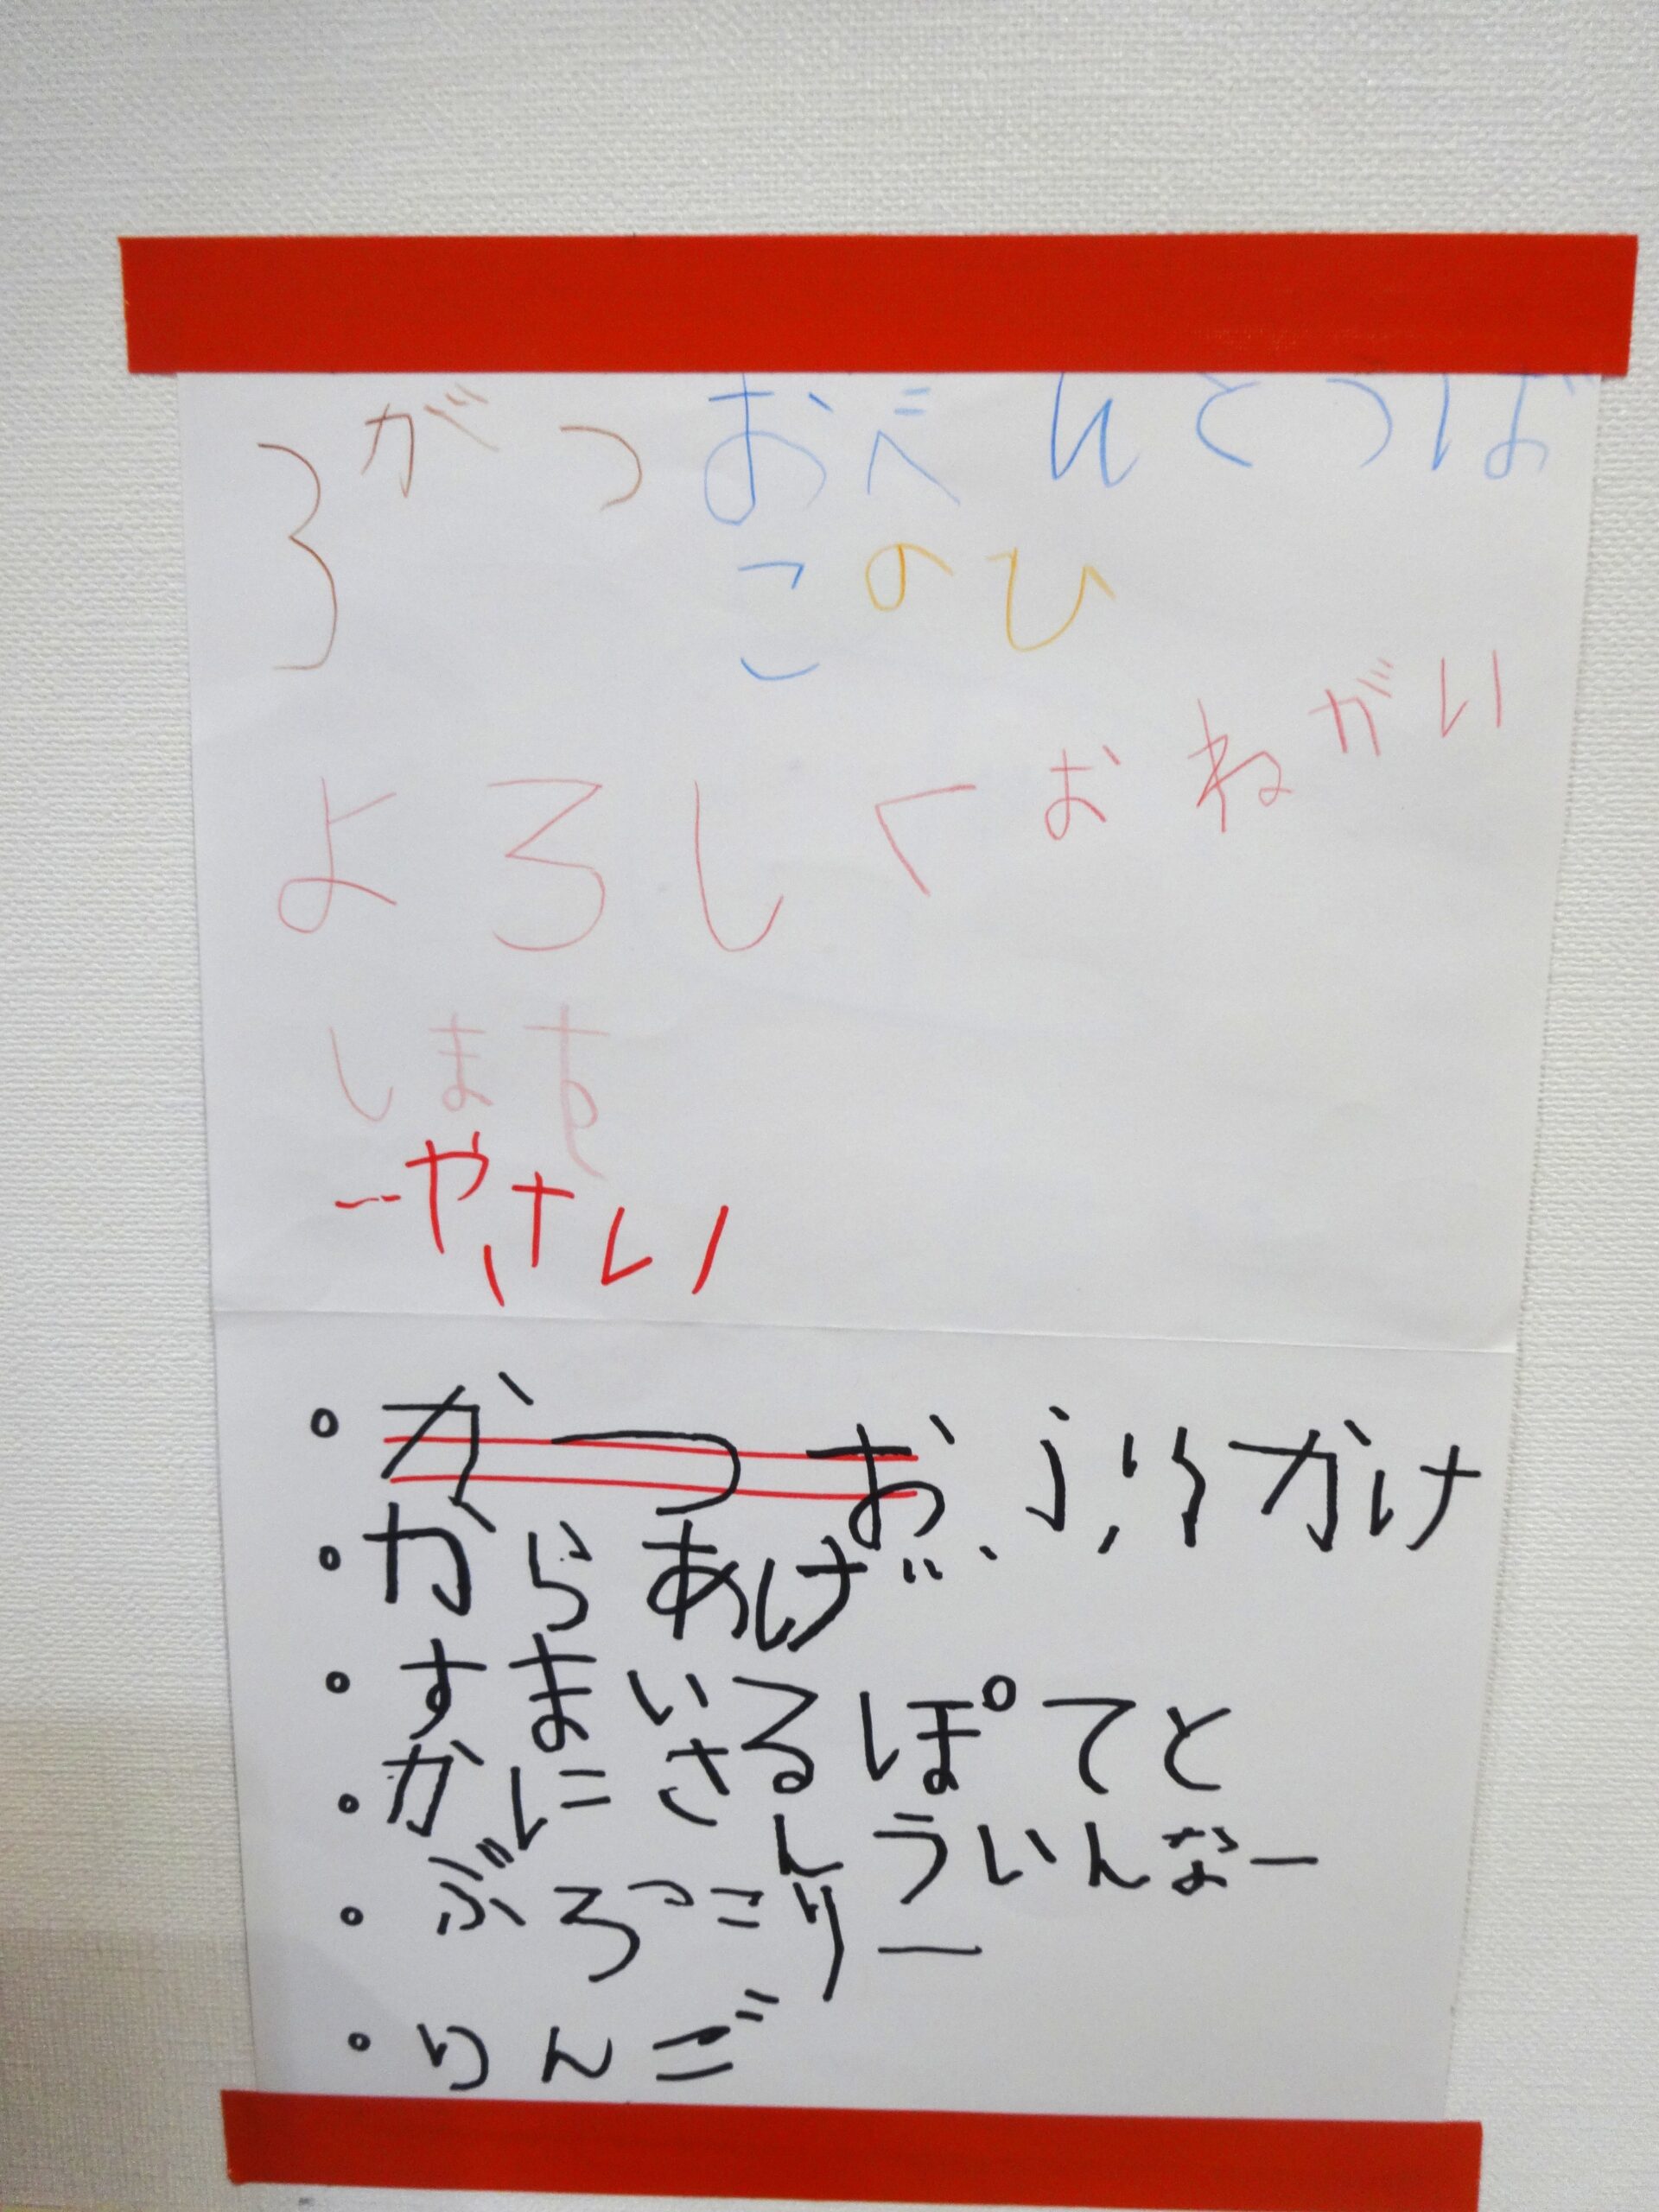 3がつおべんとうば
このひ
よろしくおねがい
します
--やさい
。かつおふりかけ
。からあげ
。すまいるぽてと
。かにさんういんなー
。ぶろっこりー
。りんご